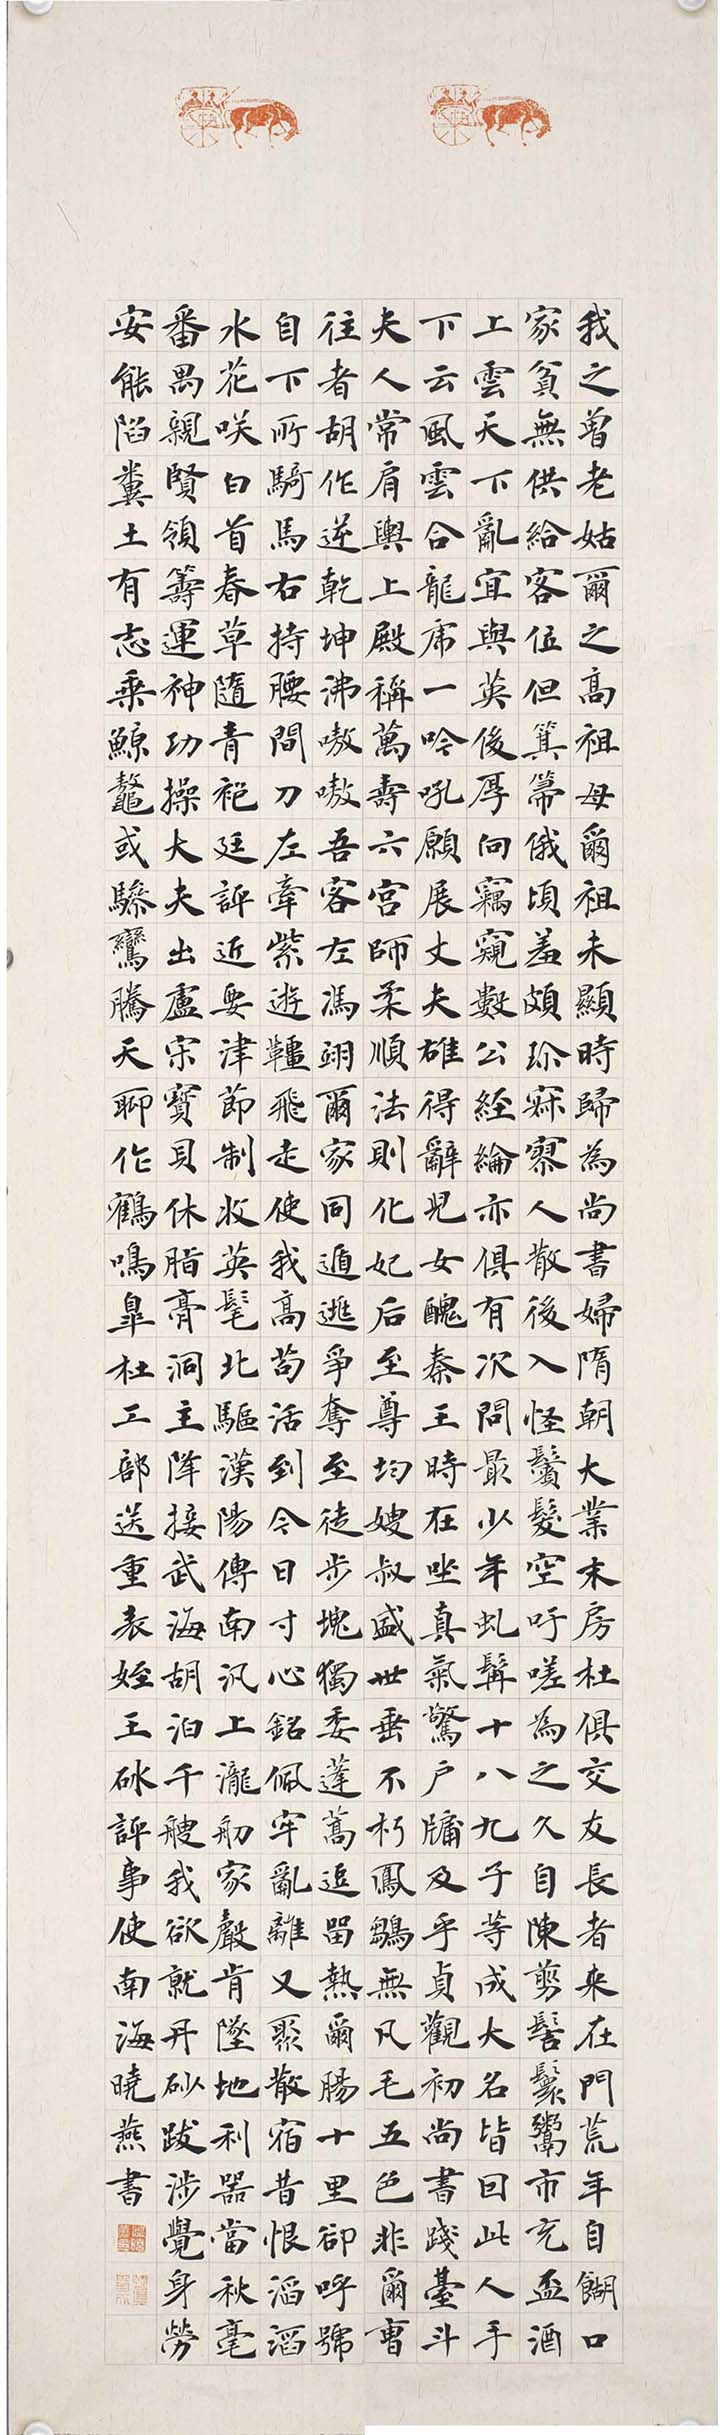 我之曾老姑爾之高祖母爾祖未顯時歸為尚書婦隋朝大業末房杜俱交友長者來在門荒年自餬口
家貧無供給客位但箕帚俄頃羞頗珍寂寥人散後入怪鬢髮空吁嗟為之久自陳剪髻鬟鬻市充盃酒
上雲天下亂宜與英俊厚向竊窺數公經綸亦俱有次問最少年虬髯十八九子等成大名皆因此人手
下云風雲合龍虎一吟吼願展丈夫雄得辭兒女醜秦王時在坐真氣驚户牖及乎貞觀初尚書踐臺斗
夫人常肩輿上殿稱萬壽六宮師柔順法則化妃后至尊均嫂叔盛世垂不朽鳳鶵無凡毛五色非爾曹
往者胡作逆乾坤沸嗷嗷吾客左馮翊爾家同遁逃爭奪至徒步塊獨委蓬蒿追留熱爾腸十里卻呼號
自下所騎馬右持腰間刀左牽紫遊韁飛走使我高苟活到今日寸心銘佩牢亂離又聚散宿昔恨滔滔
水花咲白首春草隨青袍廷評近要津節制收英髦北驅漢陽傳南汎上瀧舠家聲肯墜地利器當秋毫
番禺親賢領籌運神功操大夫出盧宋寶貝休脂膏洞主降接武海胡泊千艘我欲就丹砂跋涉覺身勞
安能陷糞土有志乘鯨鼇或驂鸞騰天聊作鶴鳴皐杜工部送重表姪王砅評事使南海曉燕書